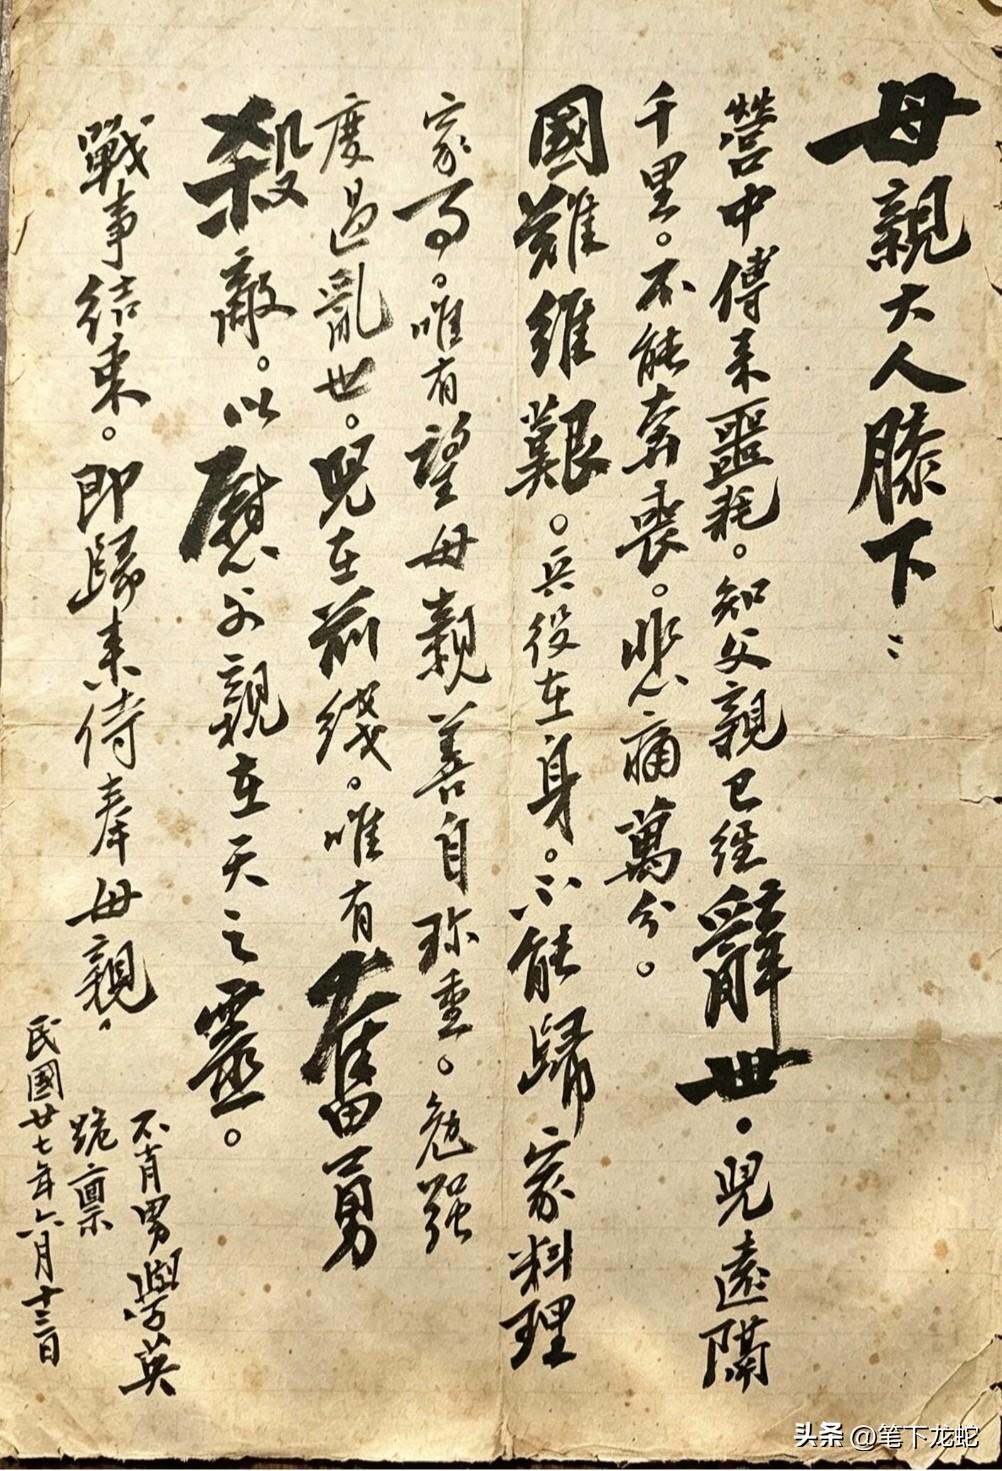 母親大人膝下：
營中傳来噩耗。知父親已经辭世。兒遠隔
千里。不能奔喪。悲痛萬分。
國難維艱。兵役在身。不能歸家料理
家事。唯有望母親善自珎重。勉强
度過亂世。兒在前线。唯有奮勇
殺敵。以慰父親在天之靈。
戰事结束。即歸来侍奉母親。
不肖男學英
跪禀
民國廿七年六月十三日
头条 @笔下龙蛇